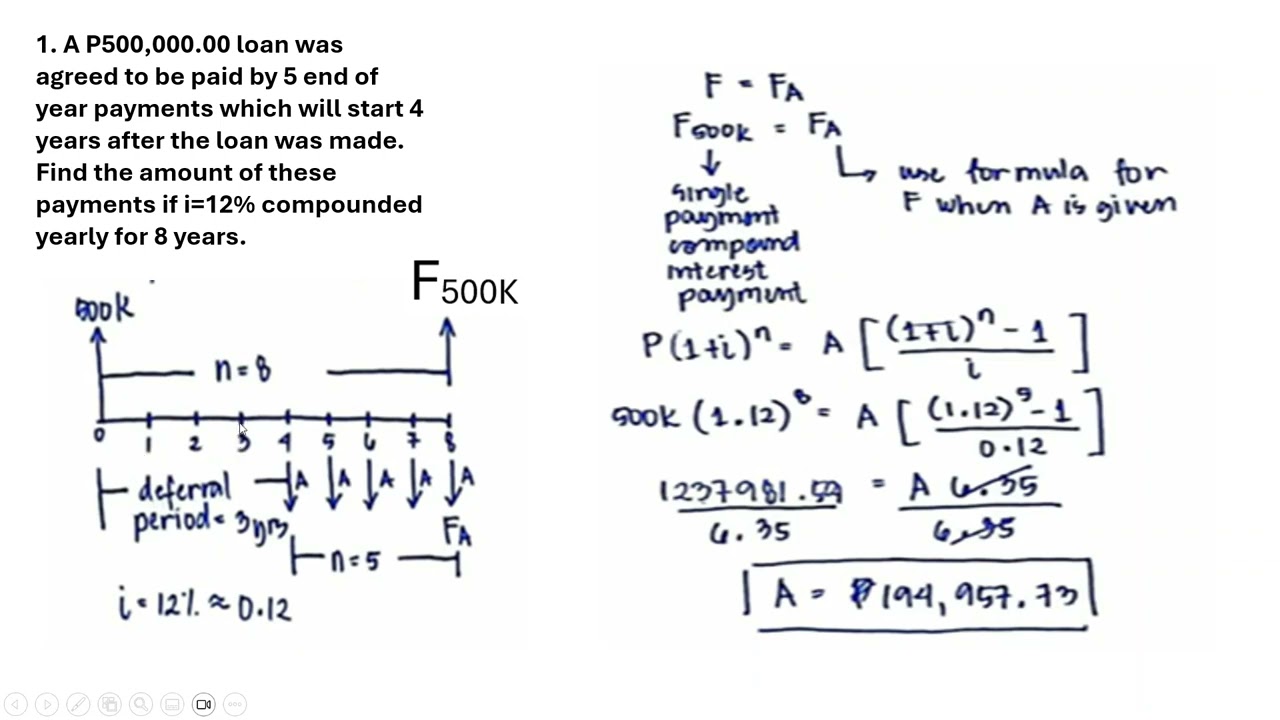 1. A P500,000.00 loan was
agreed to be paid by 5 end of
year payments which will start 4
years after the loan was made.
Find the amount of these
payments if i=12% compounded
yearly for 8 years.
F500K
500k
n = 8
0 1 2 3 4 5 6 7 8
A A A A A
deferral
period = 3yrs
FA
n = 5
i = 12% ≈ 0.12
F = FA
F500K = FA
↓
single
payment
compound
interest
payment
↳ use formula for
F when A is given
P(1+i)^n = A [ ((1+i)^n - 1) / i ]
500k (1.12)^8 = A [ ((1.12)^5 - 1) / 0.12 ]
1237981.59 / 6.35 = A 6.35 / 6.35
A = ₱194,957.73